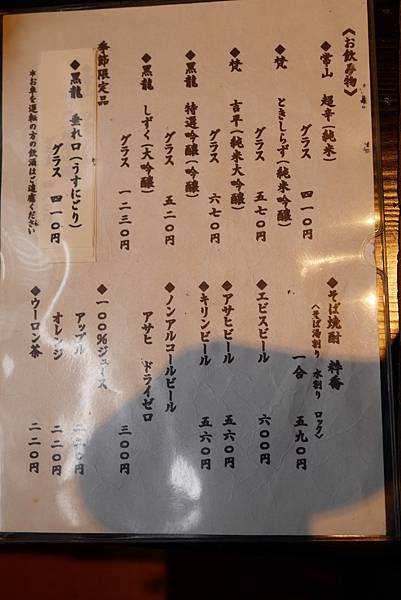 《お飲み物》
◆常山 超辛(純米)
グラス 四一〇円
◆梵 ときしらず(純米吟醸)
グラス 五七〇円
◆梵 吉平(純米大吟醸)
グラス 六七〇円
◆黒龍 特選吟醸(吟醸)
グラス 五二〇円
◆黒龍 しずく(大吟醸)
グラス 一二三〇円
季節限定品
◆黒龍 垂れ口(うすにごり)
グラス 四一〇円
*お車を運転の方の飲酒はご遠慮ください
◆そば焼酎 粋蕎
<そば湯割り 水割り ロック>
一合 五九〇円
◆エビスビール 六〇〇円
◆アサヒビール 五六〇円
◆キリンビール 五六〇円
◆ノンアルコールビール
アサヒ ドライゼロ
三〇〇円
◆一〇〇%ジュース
アップル 二二〇円
オレンジ 二二〇円
◆ウーロン茶 二二〇円